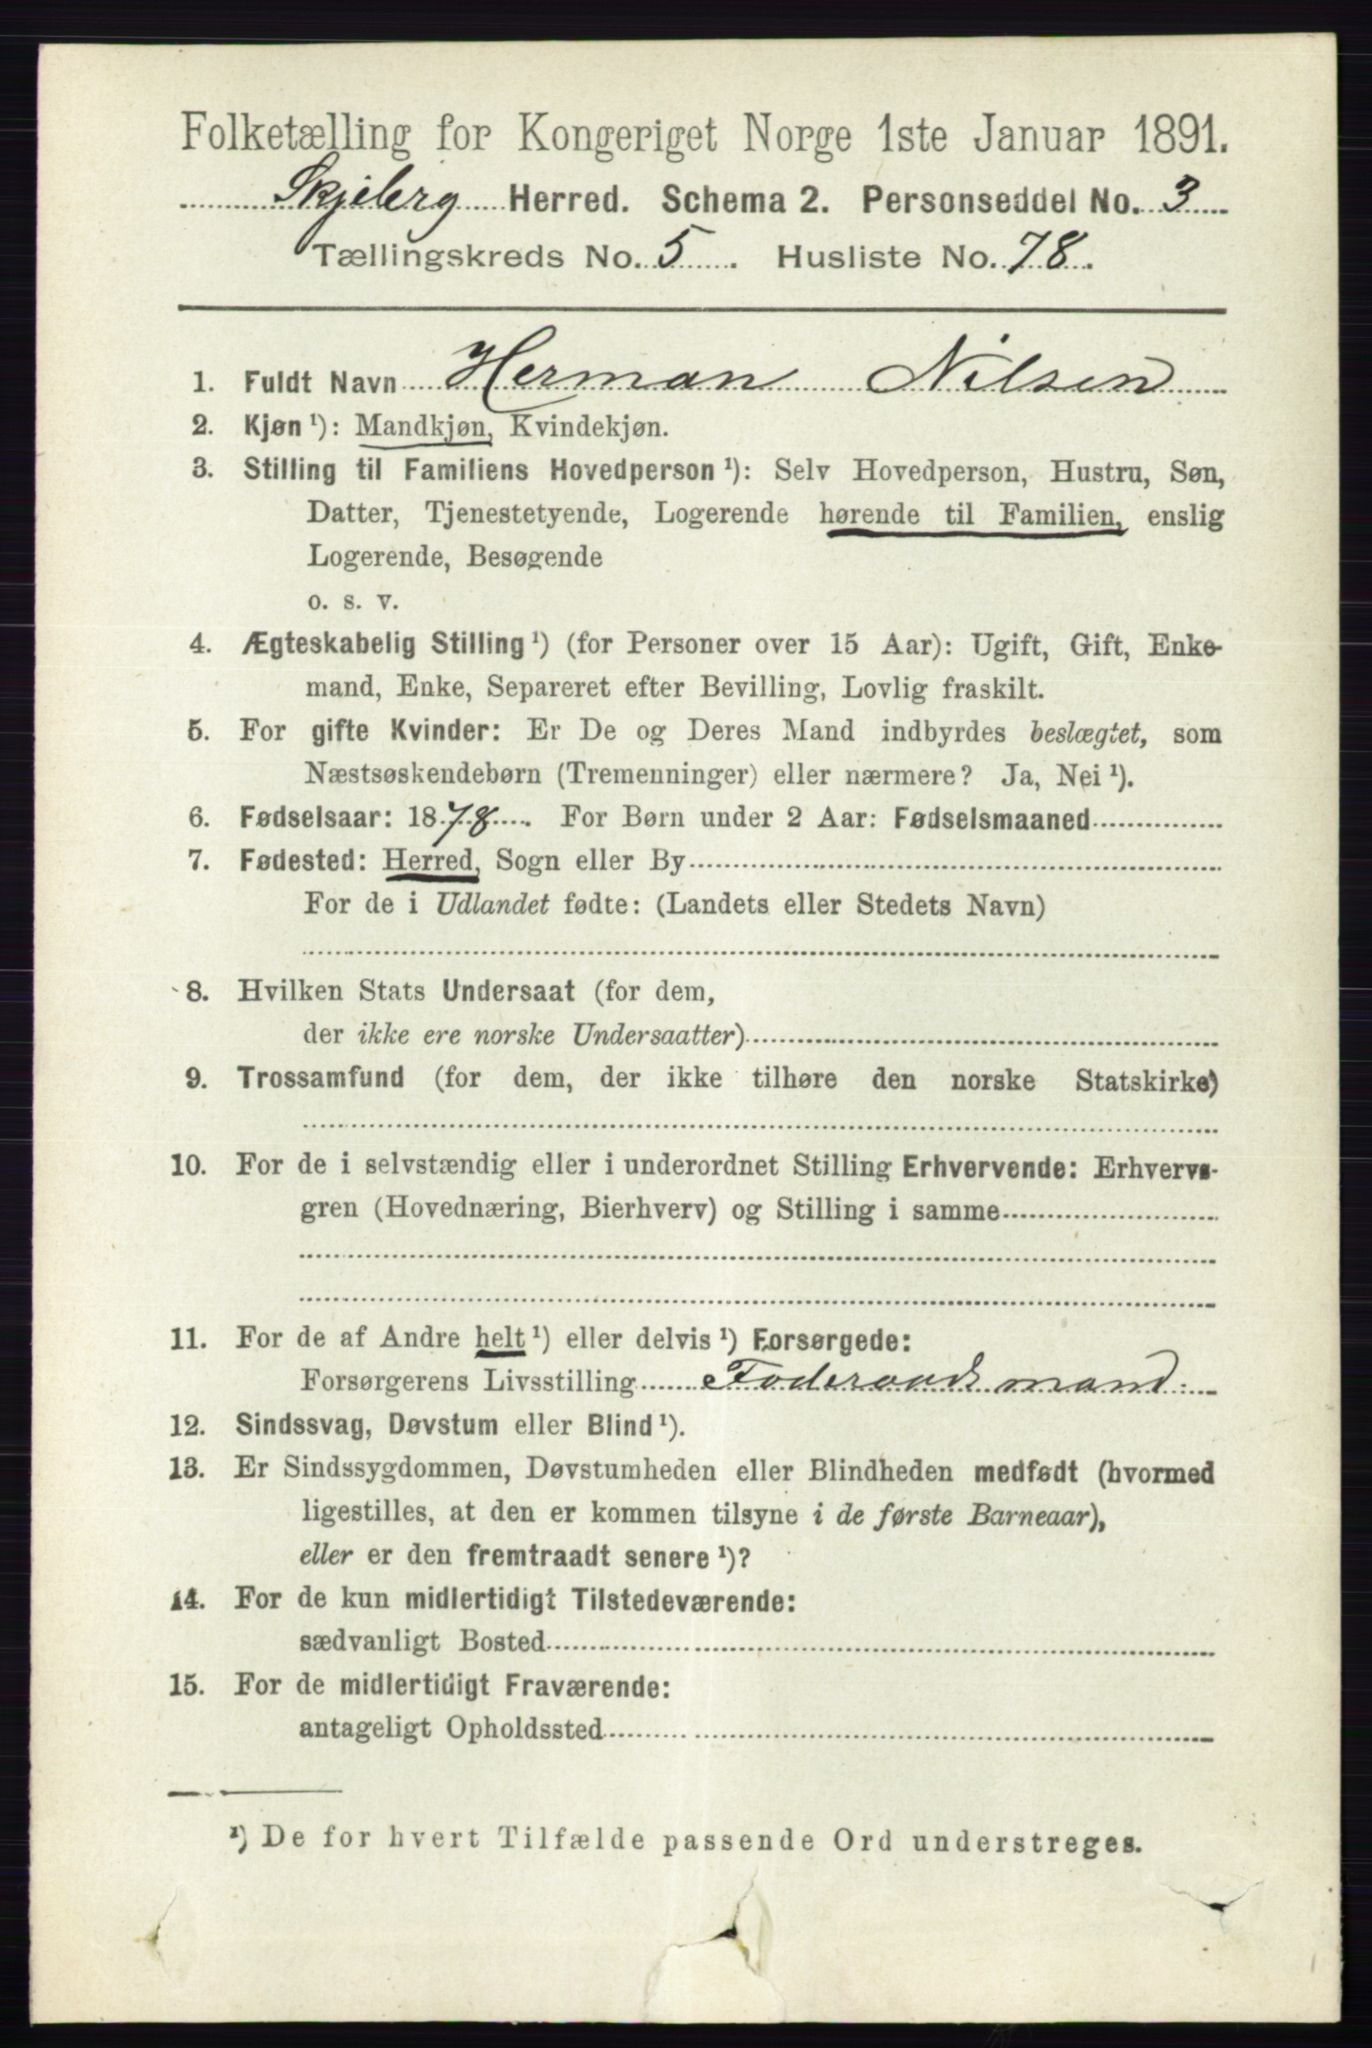 Folketælling for Kongeriget Norge 1ste Januar 1891.
Skjeberg Herred. Schema 2. Personseddel No. 3
Tællingskreds No. 5. Husliste No. 78.
1. Fuldt Navn Herman Nilsen
2. Kjøn ¹): Mandkjøn, Kvindekjøn.
3. Stilling til Familiens Hovedperson ¹): Selv Hovedperson, Hustru, Søn,
Datter, Tjenestetyende, Logerende hørende til Familien, enslig
Logerende, Besøgende
o. s. v.
4. Ægteskabelig Stilling ¹) (for Personer over 15 Aar): Ugift, Gift, Enke-
mand, Enke, Separeret efter Bevilling, Lovlig fraskilt.
5. For gifte Kvinder: Er De og Deres Mand indbyrdes beslægtet, som
Næstsøskendebørn (Tremenninger) eller nærmere? Ja, Nei ¹).
6. Fødselsaar: 1878. For Børn under 2 Aar: Fødselsmaaned
7. Fødested: Herred, Sogn eller By
For de i Udlandet fødte: (Landets eller Stedets Navn)
8. Hvilken Stats Undersaat (for dem,
der ikke ere norske Undersaatter)
9. Trossamfund (for dem, der ikke tilhøre den norske Statskirke)
10. For de i selvstændig eller i underordnet Stilling Erhvervende: Erhvervs-
gren (Hovednæring, Bierhverv) og Stilling i samme
11. For de af Andre helt ¹) eller delvis ¹) Forsørgede:
Forsørgerens Livsstilling Foderaadsmand
12. Sindssvag, Døvstum eller Blind ¹).
13. Er Sindssygdommen, Døvstumheden eller Blindheden medfødt (hvormed
ligestilles, at den er kommen tilsyne i de første Barneaar),
eller er den fremtraadt senere ¹)?
14. For de kun midlertidigt Tilstedeværende:
sædvanligt Bosted
15. For de midlertidigt Fraværende:
antageligt Opholdssted
¹) De for hvert Tilfælde passende Ord understreges.